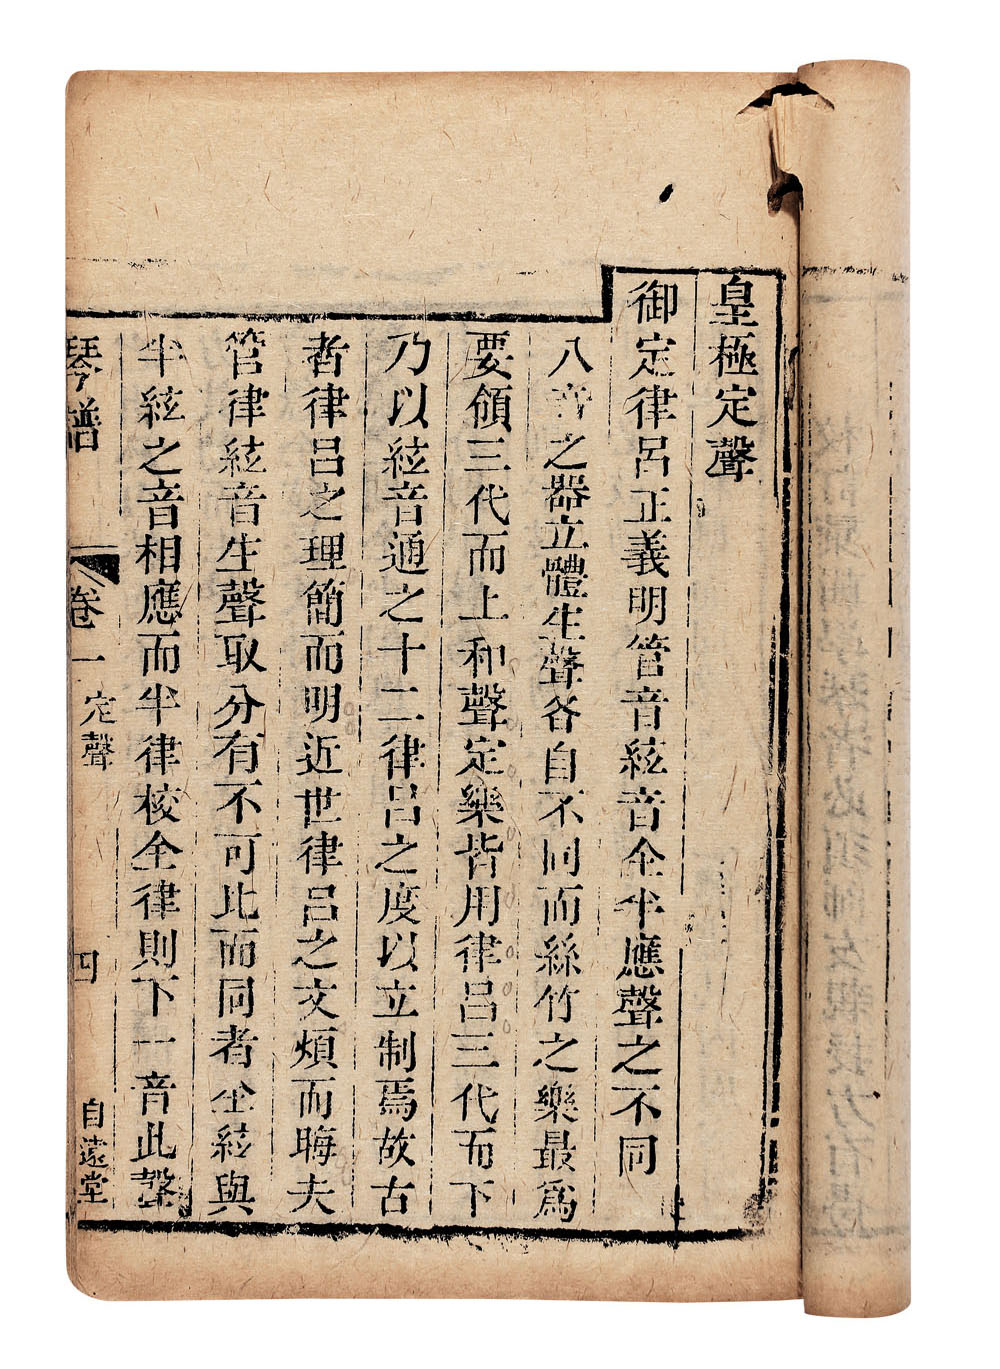 皇極定聲
御定律呂正義明管音絃音全半應聲之不同
八音之器立體生聲各自不同而絲竹之樂最爲
要領三代而上和聲定樂皆用律呂三代而下
乃以絃音通之十二律呂之度以立制焉故古
者律呂之理簡而明近世律呂之文煩而晦夫
管律絃音生聲取分有不可比而同者全絃與
半絃之音相應而半律校全律則下一音此聲
琴譜
卷一
定聲
四
自遠堂